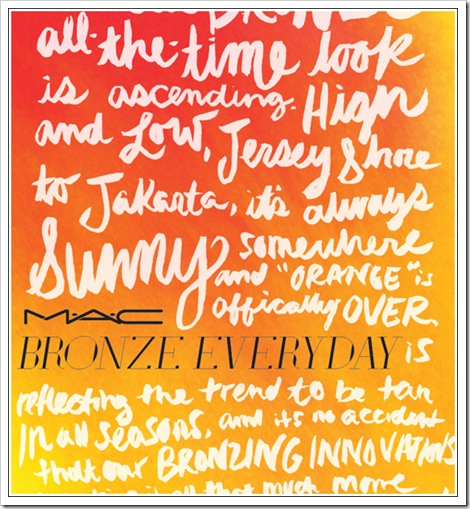 BRONZE
all-the-time look
is ascending. High
and Low, Jersey Shore
to Jakarta, it's always
Sunny somewhere
and "ORANGE" is
offically OVER.
M·A·C
BRONZE EVERYDAY is
reflecting the trend to be tan
IN all seasons, and its no accident
that our BRONZING INNOVATIONS
all that much more